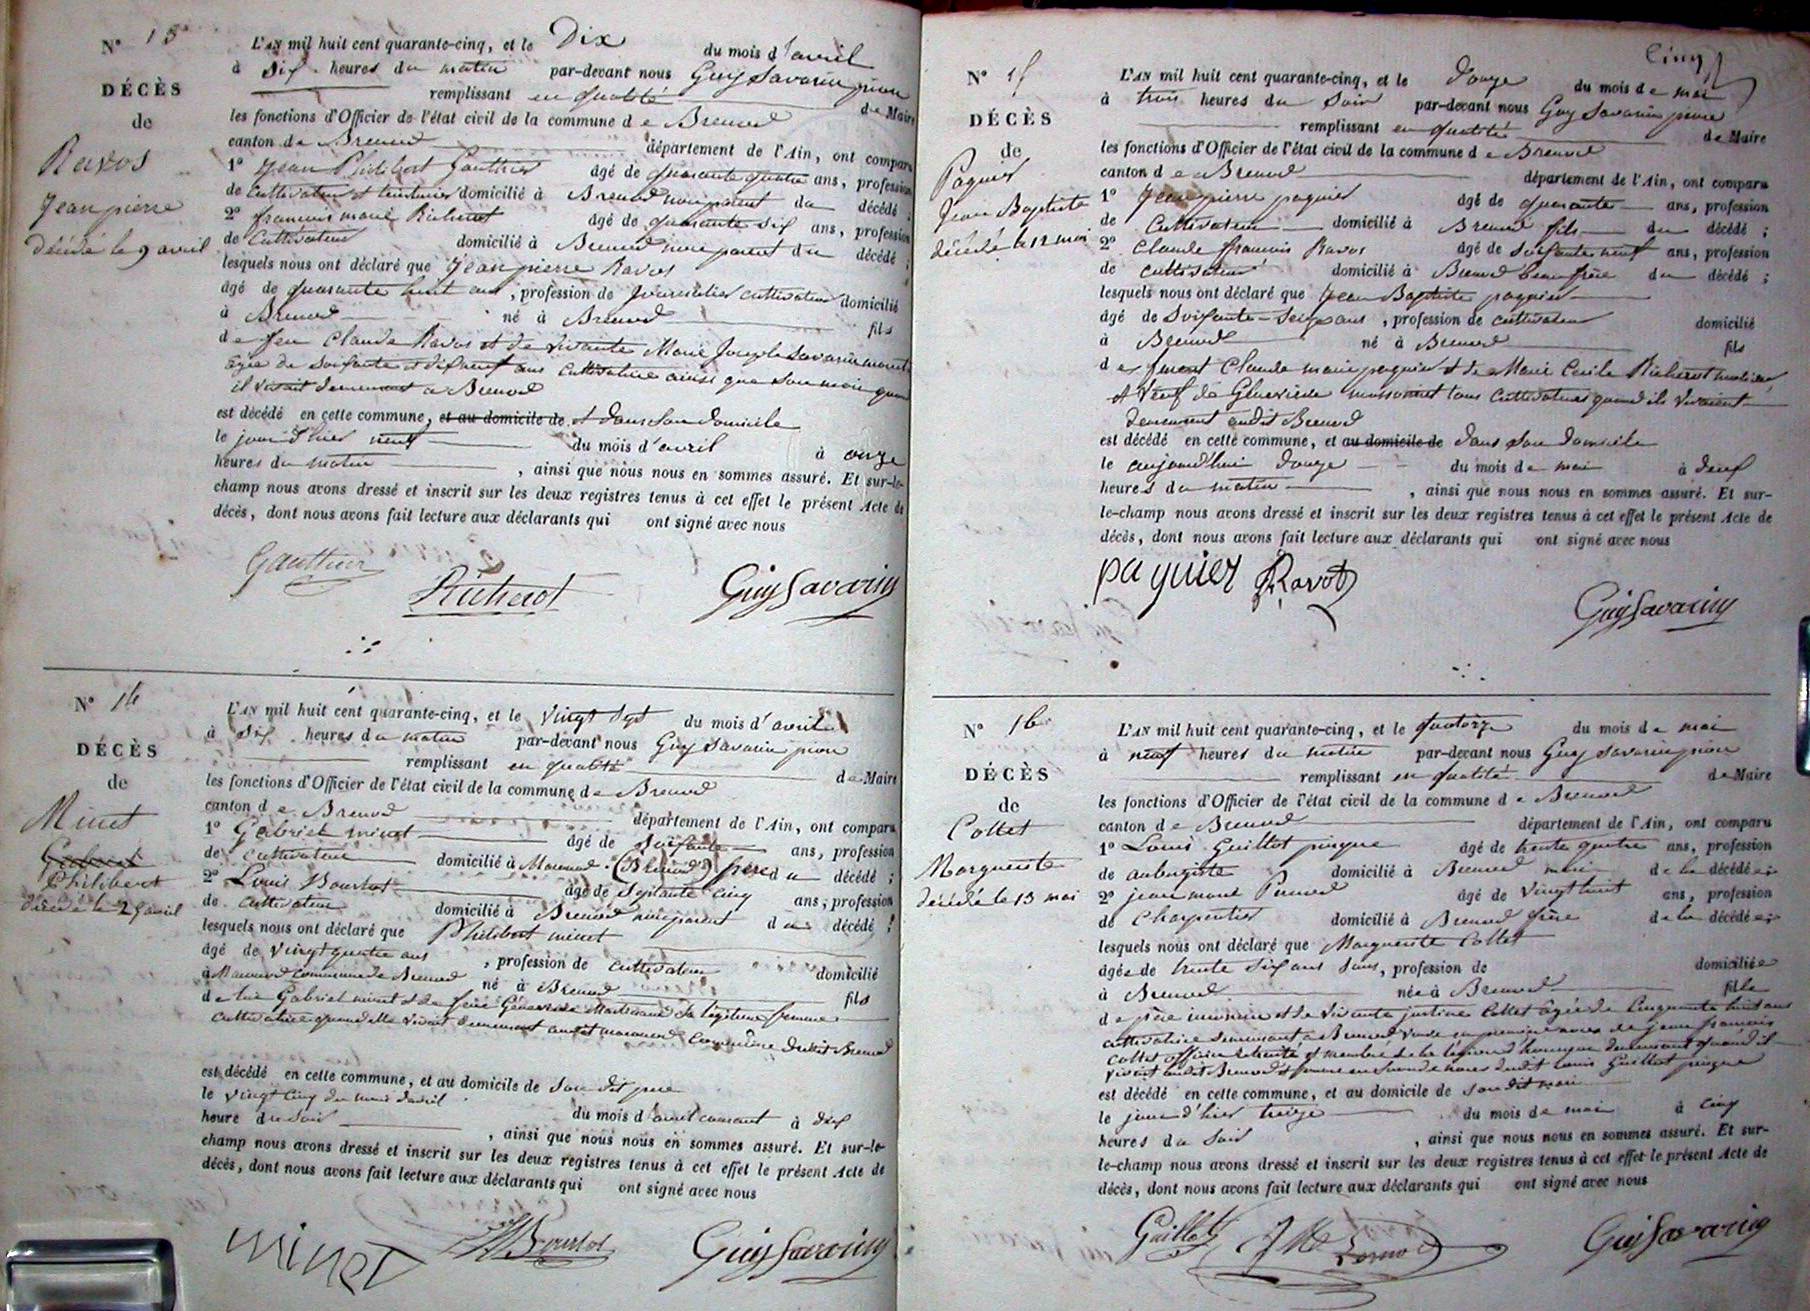 N° 13
DÉCÈS
de
Ravos
Jean pierre
décédé le 9 avril
L'AN mil huit cent quarante-cinq, et le Dix du mois d'avril
à Six heures du matin par-devant nous Guy Savarin pion
remplissant en qualité de Maire
les fonctions d'Officier de l'état civil de la commune de Brenod
canton de Brenod département de l'Ain, ont comparu
1° Jean Philibert Gauthier âgé de quarante quatre ans, profession
de Cultivateur et teinturier domicilié à Brenod non parent du décédé ;
2° françois marie Richerot âgé de quarante six ans, profession
de Cultivateur domicilié à Brenod non parent du décédé ;
lesquels nous ont déclaré que Jean pierre Ravos
âgé de quarante huit ans, profession de Journalier cultivateur domicilié
à Brenod né à Brenod fils
de feu Claude Ravos et de vivante Marie Josephe Savarin
âgée de Soixante et dix neuf ans Cultivatrice ainsi que son mari quand
il vivait demeurant à Brenod
est décédé en cette commune, et au domicile de et dans son domicile
le jour d'hier neuf du mois d'avril à onze
heures du matin, ainsi que nous nous en sommes assuré. Et sur-le-
champ nous avons dressé et inscrit sur les deux registres tenus à cet effet le présent Acte de
décès, dont nous avons fait lecture aux déclarants qui ont signé avec nous
Gauthier
Richerot
Guy Savarin
N° 14
DÉCÈS
de
Minet
Gabriel
Philibert
décédé le 25 avril
L'AN mil huit cent quarante-cinq, et le vingt Sept du mois d'avril
à Six heures du matin par-devant nous Guy Savarin pion
remplissant en qualité de Maire
les fonctions d'Officier de l'état civil de la commune de Brenod
canton de Brenod département de l'Ain, ont comparu
1° Gabriel minet âgé de Soixante ans, profession
de Cultivateur domicilié à (Brenod) père du décédé ;
2° Louis Bourbot âgé de Septante Cinq ans, profession
de Cultivateur domicilié à Brenod non parent du décédé ;
lesquels nous ont déclaré que Philibert minet
âgé de Vingt quatre ans, profession de cultivateur domicilié
à commune de Brenod né à Brenod fils
de Gabriel minet et de feue Geneviève sa légitime femme
cultivatrice quand elle vivait demeurant audit commune dudit Brenod
est décédé en cette commune, et au domicile de Son dit père
le Vingt Cinq du mois d'avril
heure du soir du mois d'avril courant à dix
, ainsi que nous nous en sommes assuré. Et sur-le-
champ nous avons dressé et inscrit sur les deux registres tenus à cet effet le présent Acte de
décès, dont nous avons fait lecture aux déclarants qui ont signé avec nous
minet
Bourbot
Guy Savarin
Cinq
N° 15
DÉCÈS
de
Paquier
Jean Baptiste
décédé le 12 mai
L'AN mil huit cent quarante-cinq, et le douze du mois de mai
à trois heures du Soir par-devant nous Guy Savarin pion
remplissant en qualité de Maire
les fonctions d'Officier de l'état civil de la commune de Brenod
canton de Brenod département de l'Ain, ont comparu
1° Jean pierre paquier âgé de quarante ans, profession
de Cultivateur domicilié à Brenod fils du décédé ;
2° Claude françois Ravos âgé de Soixante neuf ans, profession
de cultivateur domicilié à Brenod beau frère du décédé ;
lesquels nous ont déclaré que Jean Baptiste paquier
âgé de Soixante-Seize ans, profession de cultivateur domicilié
à Brenod né à Brenod fils
de Claude marie paquier et de Marie Cecile Richerot
et Veuf de Geneviève tous Cultivateurs quand ils vivaient
demeurant audit Brenod
est décédé en cette commune, et au domicile de dans son domicile
le aujourd'hui douze du mois de mai à deux
heures du matin, ainsi que nous nous en sommes assuré. Et sur-
le-champ nous avons dressé et inscrit sur les deux registres tenus à cet effet le présent Acte de
décès, dont nous avons fait lecture aux déclarants qui ont signé avec nous
paquier Ravot
Guy Savarin
N° 16
DÉCÈS
de
Collet
Marguerite
décédé le 13 mai
L'AN mil huit cent quarante-cinq, et le quatorze du mois de mai
à neuf heures du matin par-devant nous Guy Savarin pion
remplissant en qualité de Maire
les fonctions d'Officier de l'état civil de la commune de Brenod
canton de Brenod département de l'Ain, ont comparu
1° Louis Guillot âgé de trente quatre ans, profession
de aubergiste domicilié à Brenod mari de la décédée ;
2° jean marie âgé de Vingt huit ans, profession
de Charpentier domicilié à Brenod frère de la décédée ;
lesquels nous ont déclaré que Marguerite Collet
âgée de trente Six ans Sans, profession de domiciliée
à Brenod née à Brenod fille
de père inconnu et de vivante justine Collet âgée de Cinquante huit ans
cultivatrice demeurant à Brenod Veuve en première noces de jean françois
Collet officier retraité et membre de la légion d'honneur demeurant quand il
vivait audit Brenod et femme en seconde noces dudit Louis Guillot
est décédé en cette commune, et au domicile de son dit mari
le jour d'hier treize du mois de mai à Cinq
heures du Soir, ainsi que nous nous en sommes assuré. Et sur-
le-champ nous avons dressé et inscrit sur les deux registres tenus à cet effet le présent Acte de
décès, dont nous avons fait lecture aux déclarants qui ont signé avec nous
Guillot
Guy Savarin